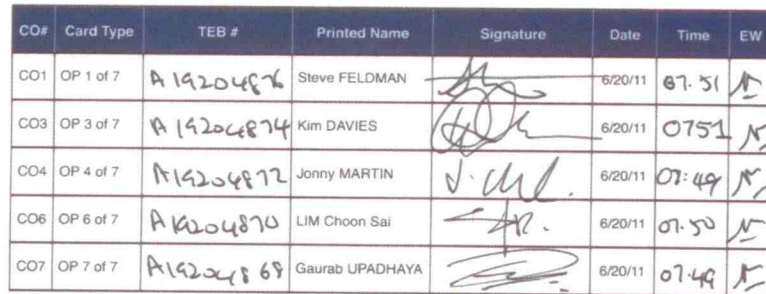 CO# Card Type TEB # Printed Name Signature Date Time EW
CO1 OP 1 of 7 A19204876 Steve FELDMAN 6/20/11 07.51
CO3 OP 3 of 7 A19204874 Kim DAVIES 6/20/11 0751
CO4 OP 4 of 7 A19204872 Jonny MARTIN 6/20/11 07:49
CO6 OP 6 of 7 A19204870 LIM Choon Sai 6/20/11 07.50
CO7 OP 7 of 7 A19204869 Gaurab UPADHAYA 6/20/11 07.49